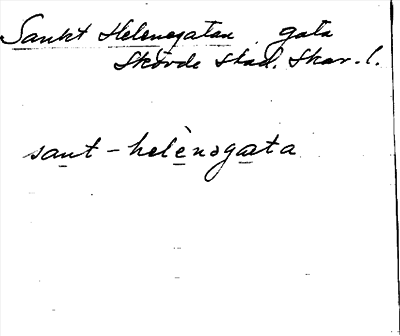 Sankt Helenegatan gata
Skövde stad. Skar. l.
sant-helènogata